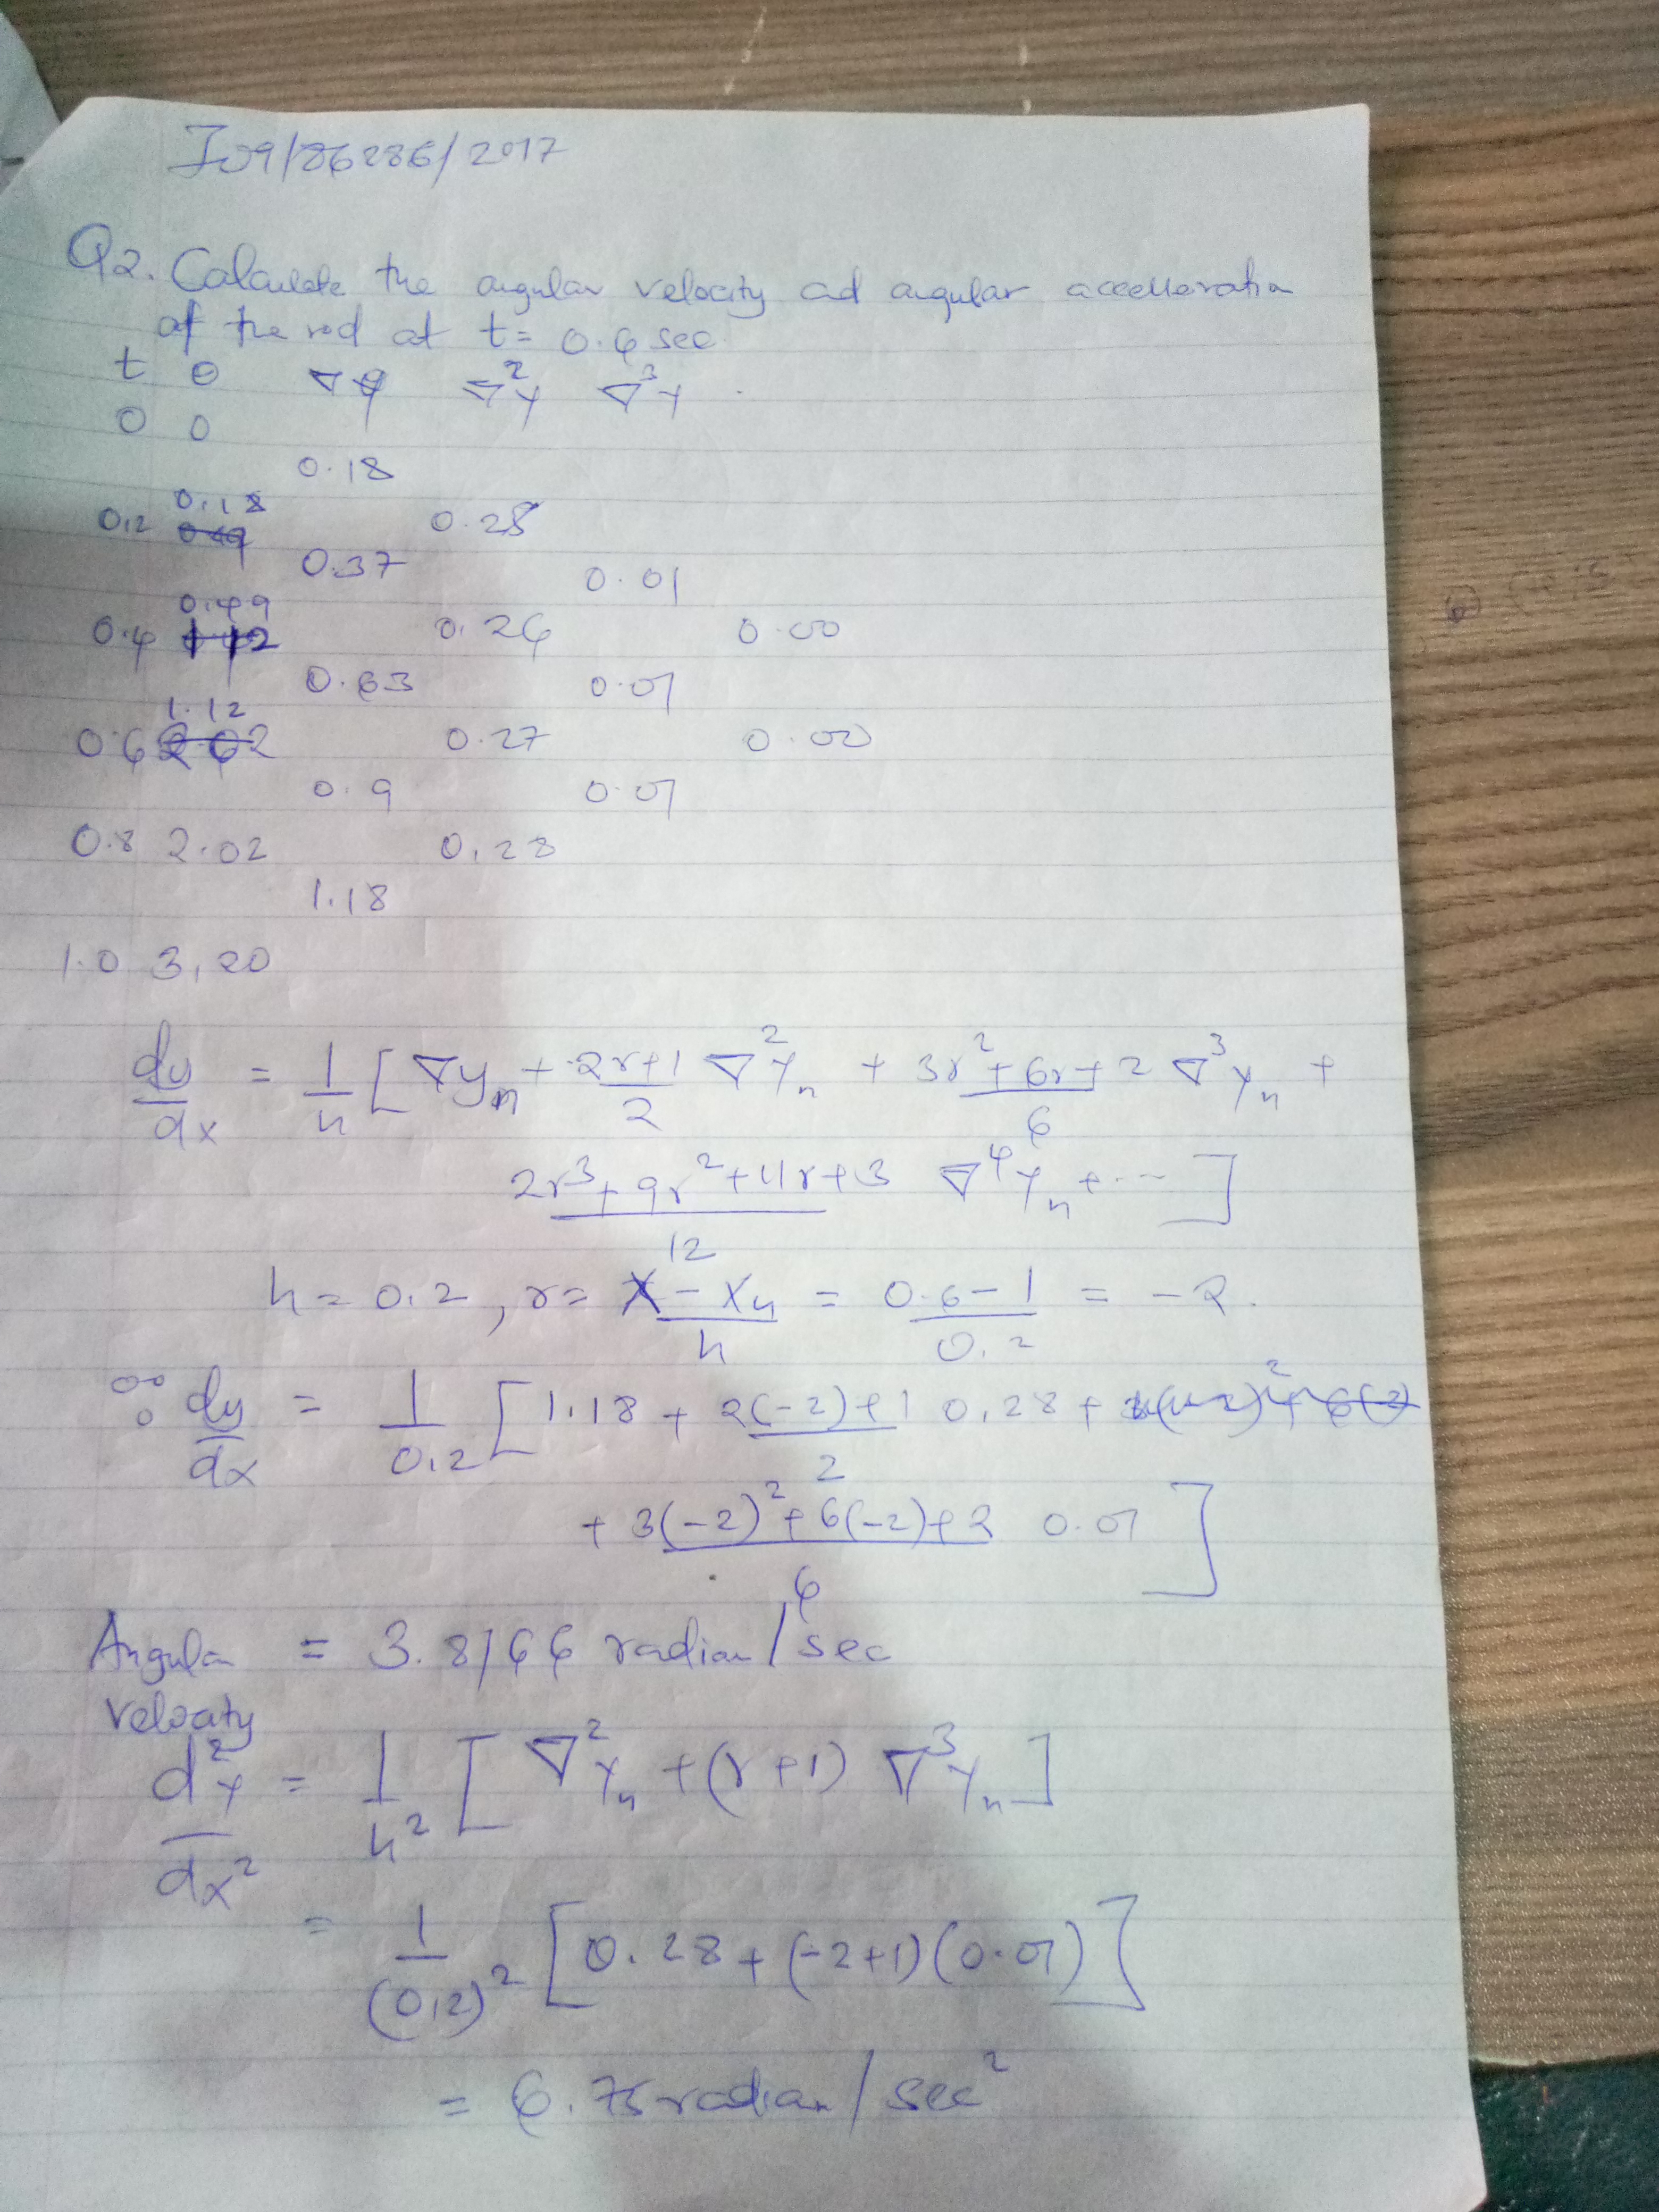 I09/86286/2017
Q2. Calculate the angular velocity ad angular accelleration
of the rod at t = 0.6 sec.
t θ ∇y ∇²y ∇³y
0 0
0.18
0.2 0.18
0.25
0.37
0.01
0.49
0.4 1.12 0.26 0.00
0.63 0.01
1.12
0.6 2.02 0.27 0.00
0.9 0.01
0.8 2.02 0.28
1.18
1.0 3.20
dy/dx = 1/h [∇yn + 2r+1/2 ∇²yn + 3r²+6r+2/6 ∇³yn +
2r³+9r²+11r+3/12 ∇⁴yn + --- ]
h = 0.2, r = x - xn/h = 0.6-1/0.2 = -2.
∴ dy/dx = 1/0.2 [1.18 + 2(-2)+1/2 0.28 +
+ 3(-2)²+6(-2)+2/6 0.01 ]
Angular = 3.8166 radian/sec
velocity
d²y/dx² = 1/h² [∇²yn + (r+1) ∇³yn]
= 1/(0.2)² [0.28 + (-2+1)(0.01)]
= 6.75 radian/sec²